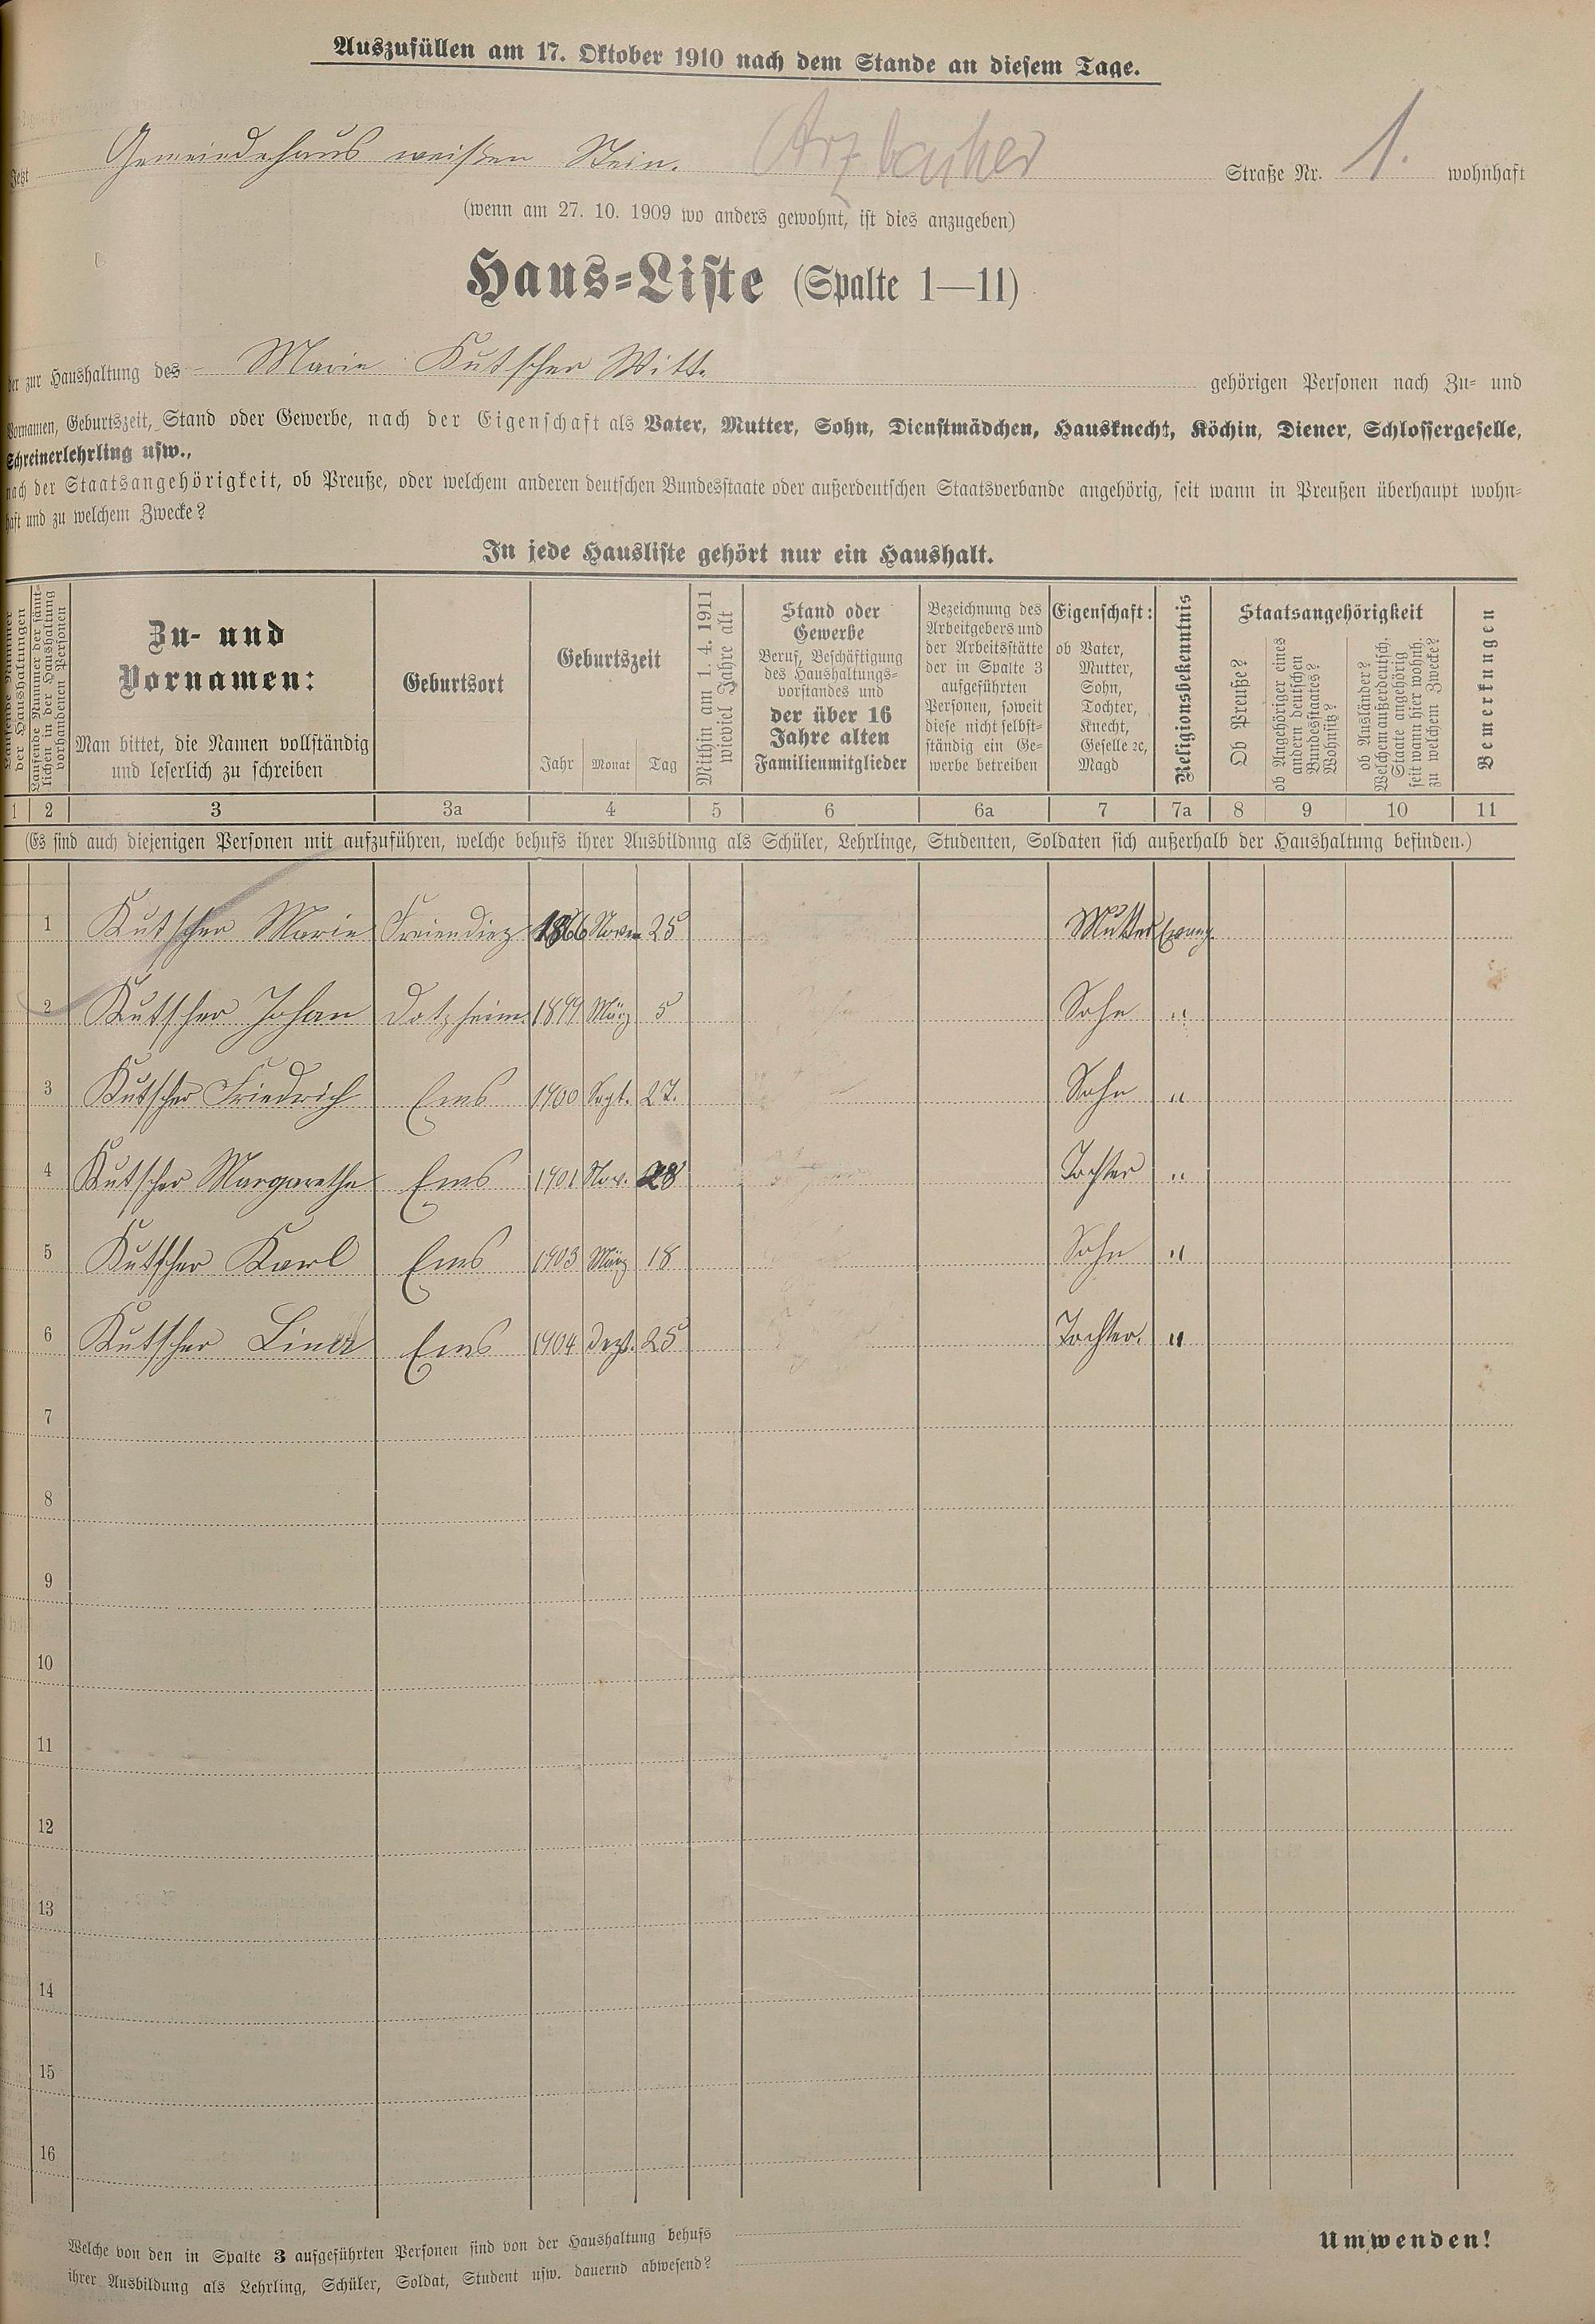 Auszufüllen am 17. Oktober 1910 nach dem Stande an diesem Tage.
Jetzt Gemeindehaus weißen Stein. Arzbacher Straße Nr. 1. wohnhaft
(wenn am 27. 10. 1909 wo anders gewohnt, ist dies anzugeben)
Haus-Liste (Spalte 1—11)
der zur Haushaltung des Marie Kutscher Witt. gehörigen Personen nach Zu- und
Vornamen, Geburtszeit, Stand oder Gewerbe, nach der Eigenschaft als Vater, Mutter, Sohn, Dienstmädchen, Hausknecht, Köchin, Diener, Schlossergeselle,
Schreinerlehrling usw.,
nach der Staatsangehörigkeit, ob Preuße, oder welchem anderen deutschen Bundesstaate oder außerdeutschen Staatsverbande angehörig, seit wann in Preußen überhaupt wohn-
haft und zu welchem Zwecke?
In jede Hausliste gehört nur ein Haushalt.
Laufende Nummer der Haushaltungen
Laufende Nummer der sämt-
lichen in der Haushaltung
vorhandenen Personen
Zu- und
Vornamen:
Man bittet, die Namen vollständig
und leserlich zu schreiben
Geburtsort
Geburtszeit
Jahr Monat Tag
Mithin am 1. 4. 1911
wieviel Jahre alt
Stand oder
Gewerbe
Beruf, Beschäftigung
des Haushaltungs-
vorstandes und
der über 16
Jahre alten
Familienmitglieder
Bezeichnung des
Arbeitgebers und
der Arbeitsstätte
der in Spalte 3
aufgeführten
Personen, soweit
diese nicht selbst-
ständig ein Ge-
werbe betreiben
Eigenschaft:
ob Vater,
Mutter,
Sohn,
Tochter,
Knecht,
Geselle ꝛc,
Magd
Religionsbekenntnis
Staatsangehörigkeit
Ob Preuße?
ob Angehöriger eines
andern deutschen
Bundesstaates?
Wohnsitz?
ob Ausländer?
Welchem außerdeutsch.
Staate angehörig
seit wann hier wohnh.
zu welchem Zwecke?
Bemerkungen
1 2 3 3a 4 5 6 6a 7 7a 8 9 10 11
(Es sind auch diejenigen Personen mit aufzuführen, welche behufs ihrer Ausbildung als Schüler, Lehrlinge, Studenten, Soldaten sich außerhalb der Haushaltung befinden.)
1 Kutscher Marie Freiendiez 1866 Novem 25 Mutter Evang.
2 Kutscher Johan Dotzheim 1899 März 5 Sohn "
3 Kutscher Friedrich Ems 1900 Sept. 27. Sohn "
4 Kutscher Margarethe Ems 1901 Nov. 28 Tochter "
5 Kutscher Karl Ems 1903 März 18 Sohn "
6 Kutscher Lina Ems 1904 Dezb. 25 Tochter. "
7
8
9
10
11
12
13
14
15
16
Welche von den in Spalte 3 aufgeführten Personen sind von der Haushaltung behufs
ihrer Ausbildung als Lehrling, Schüler, Soldat, Student usw. dauernd abwesend?
Umwenden!